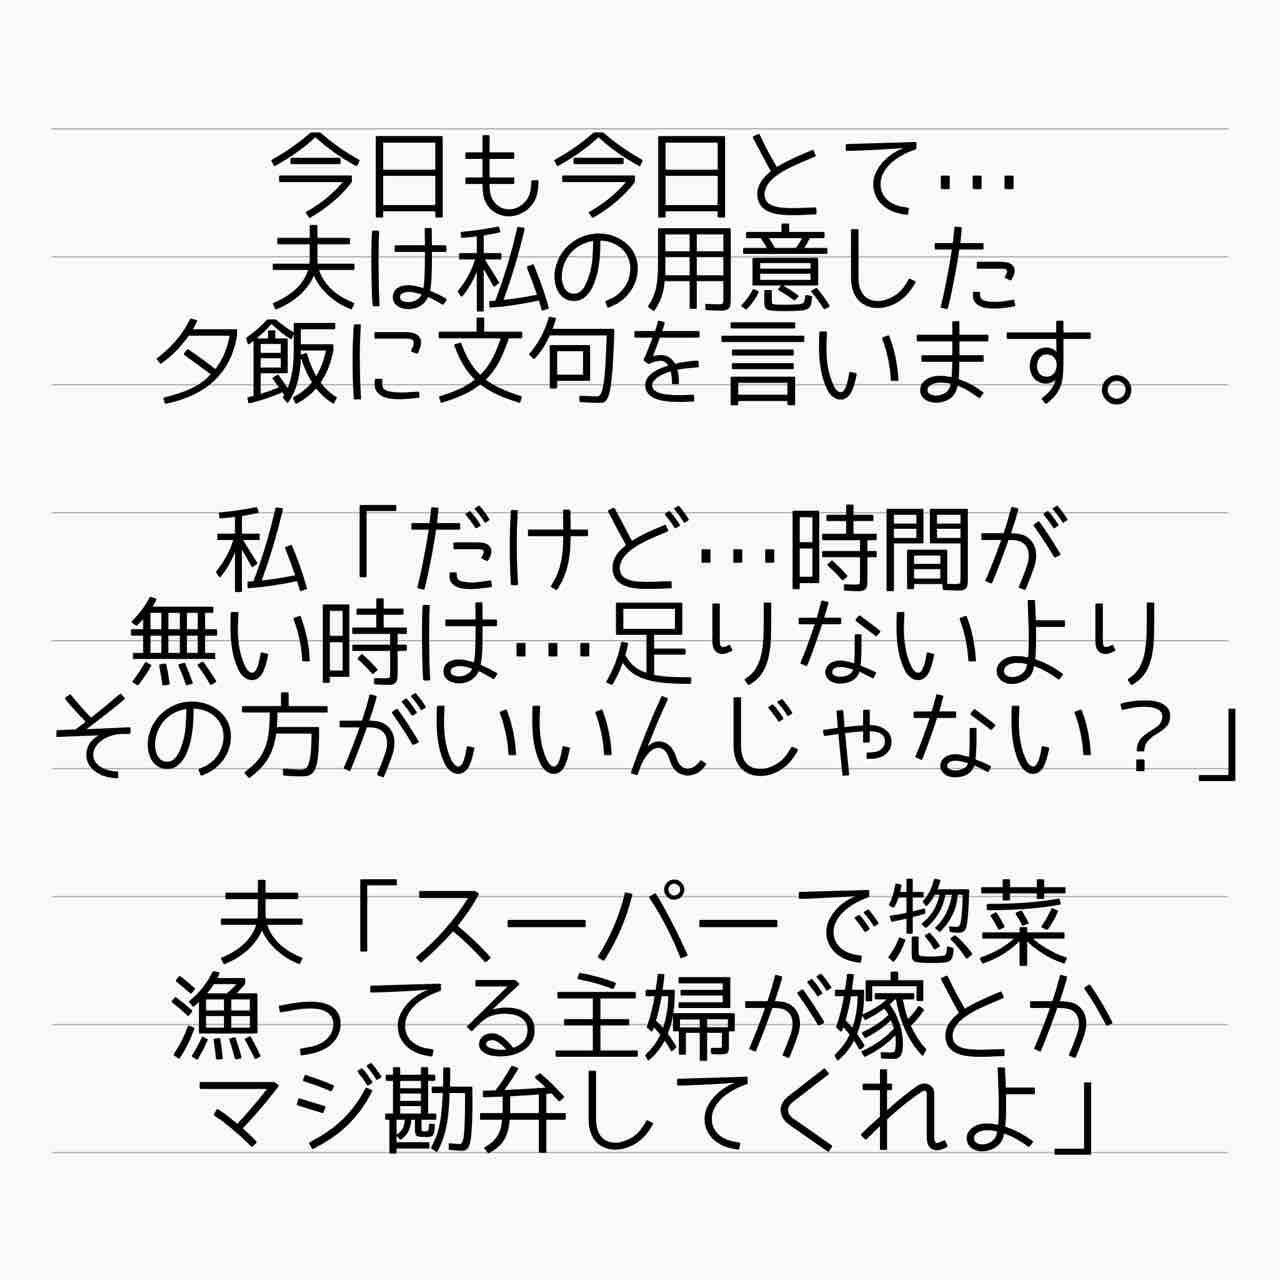 今日も今日とて…
夫は私の用意した
夕飯に文句を言います。
私「だけど…時間が
無い時は…足りないより
その方がいいんじゃない？」
夫「スーパーで惣菜
漁ってる主婦が嫁とか
マジ勘弁してくれよ」